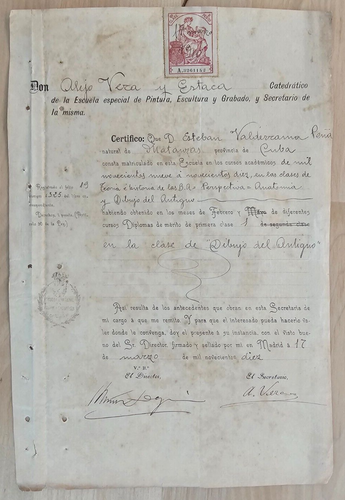 Don Alejo Vera y Estaca Catedrático
de la Escuela especial de Pintura, Escultura y Grabado, y Secretario de
la misma.
Certifico: Que D. Esteban Valderrama Peña
natural de Matanzas provincia de Cuba
consta matriculado en esta Escuela en los cursos académicos de mil
novecientos nueve á novecientos diez, en las clases de
Teoría é historia de las B.A. Perspectiva Anatomía
y Dibujo del Antiguo
habiendo obtenido en los meses de Febrero y de diferentes
cursos Diplomas de mérito de primera clase 1
en la clase de "Dibujo del Antiguo"
Así resulta de los antecedentes que obran en esta Secretaría de
mi cargo á que me remito. Y para que el interesado pueda hacerlo va-
ler donde le convenga, doy el presente á su instancia, con el Visto bue-
no del Sr. Director, firmado y sellado por mí en Madrid á 17
de marzo de mil novecientos diez
V.º B.º
El Director,
El Secretario,
A. Vera